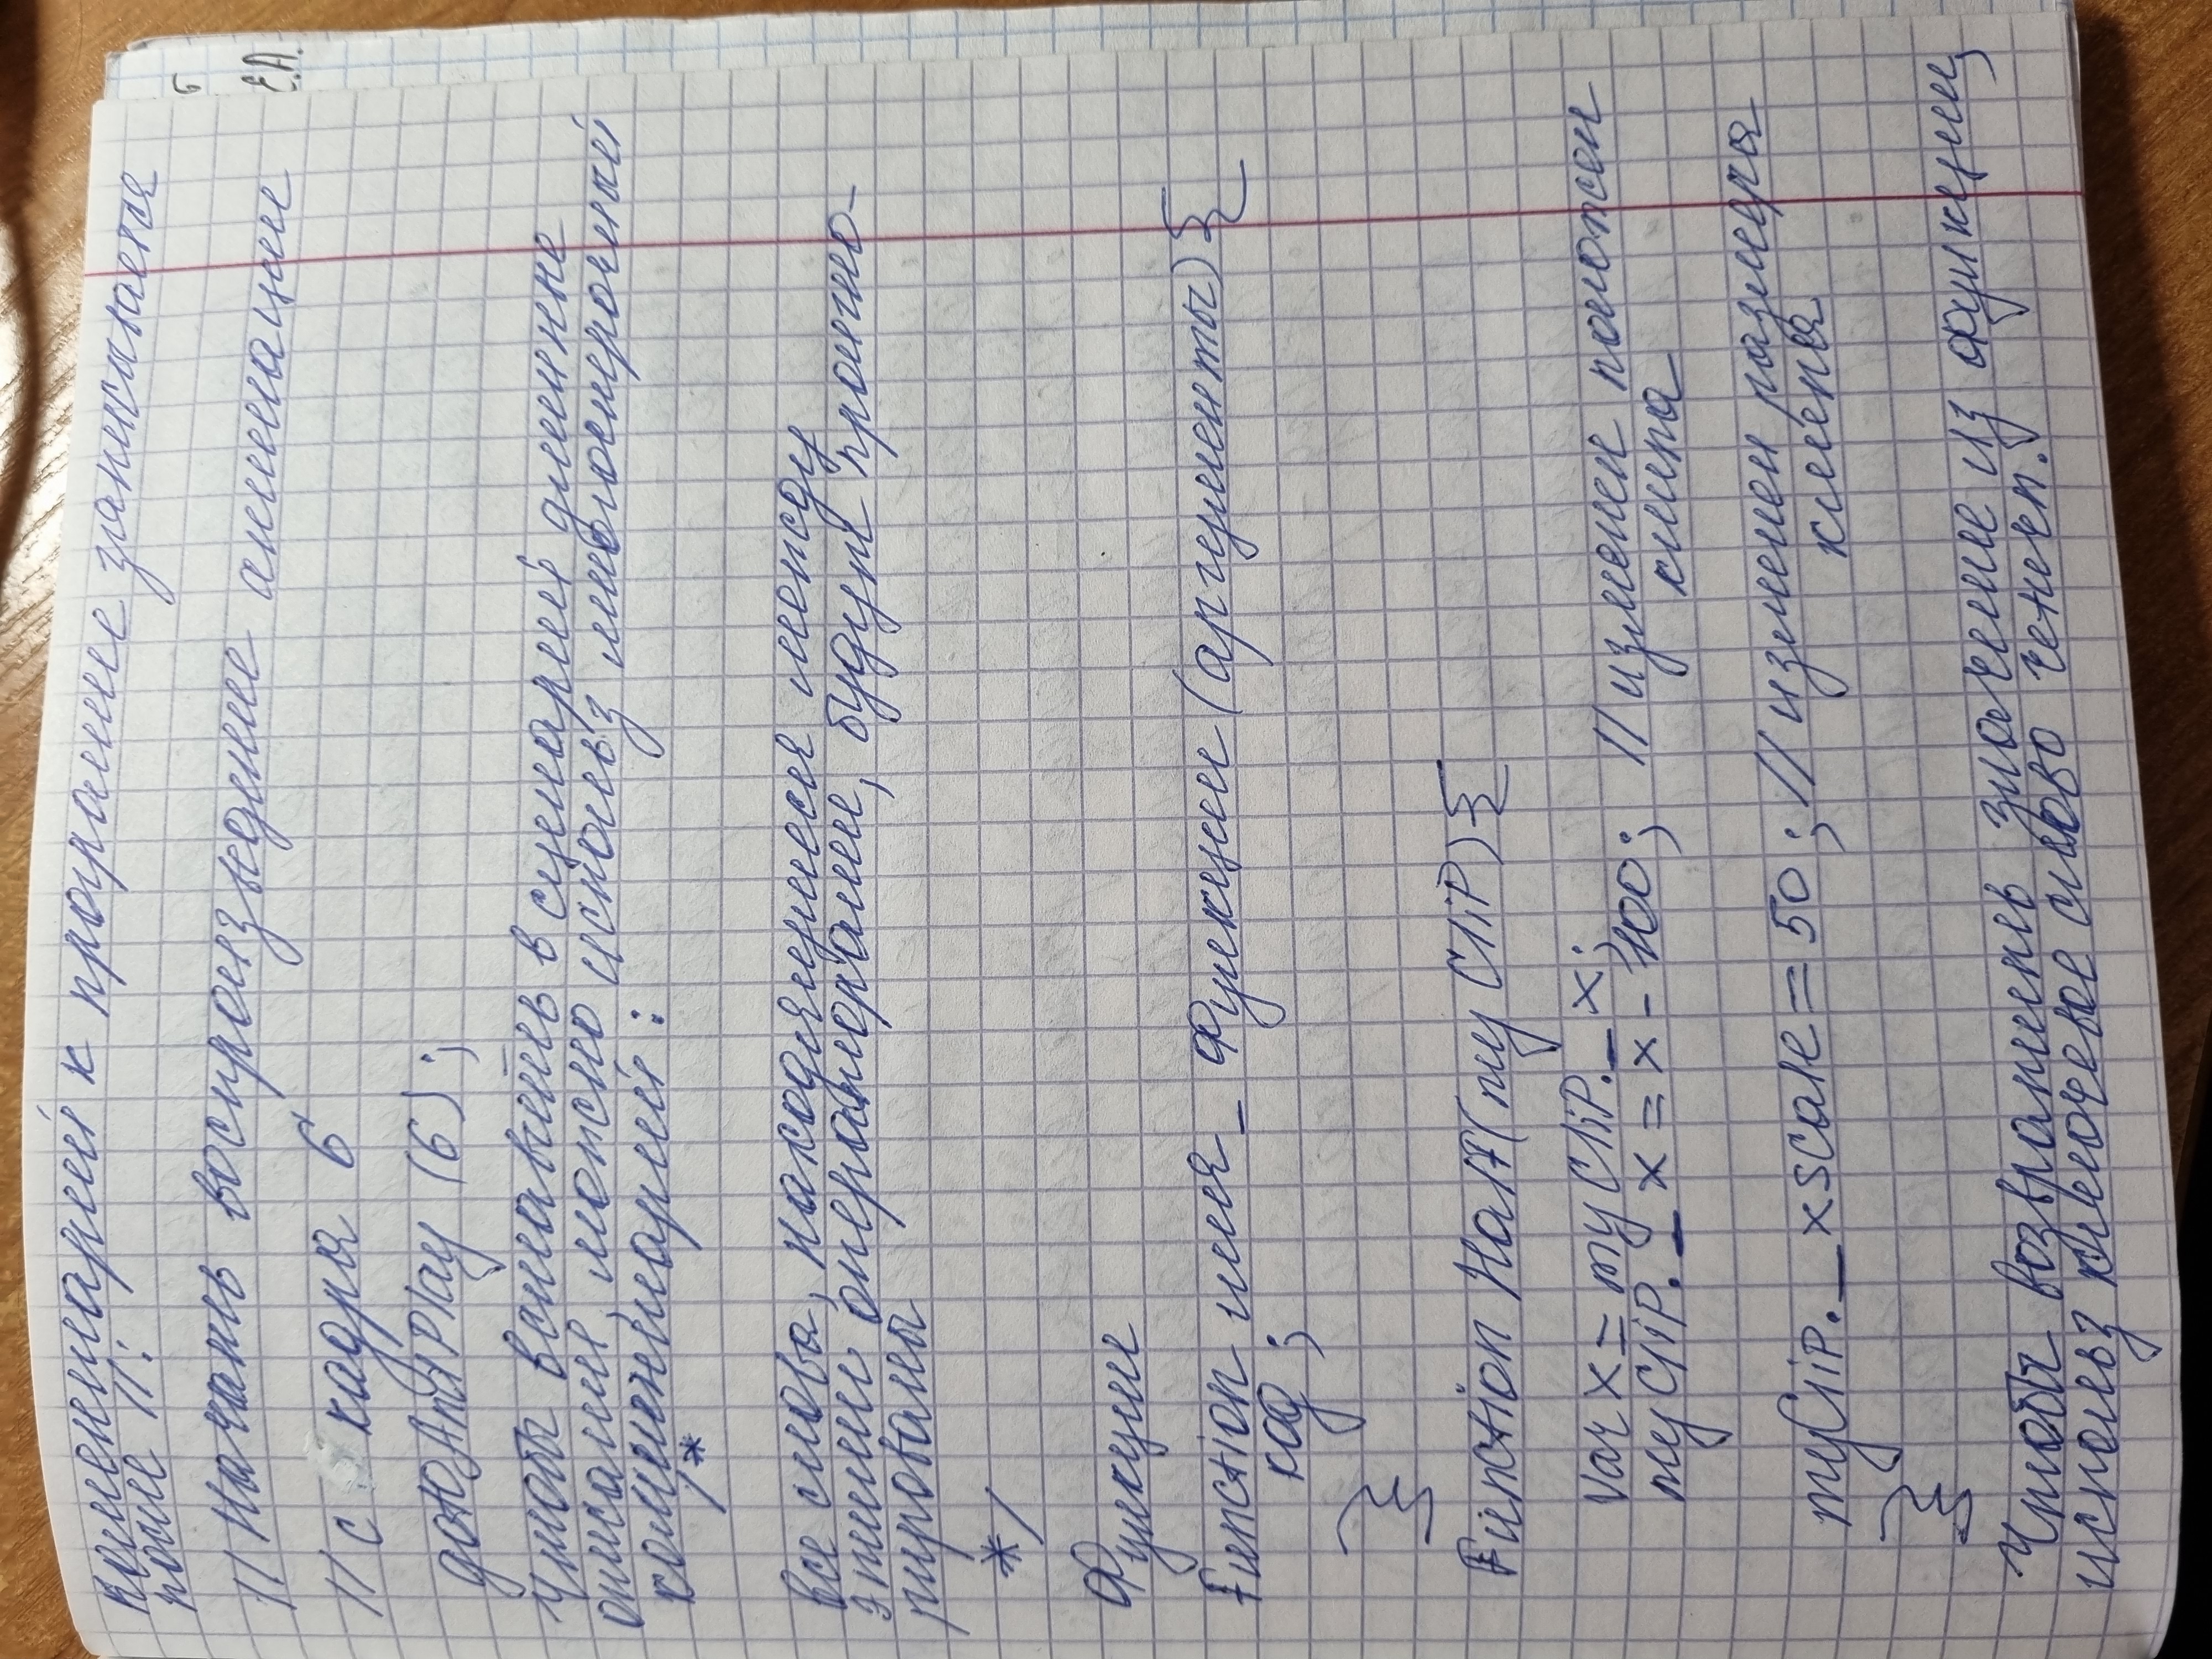 Коментарий к программе записывается
после //:
// Начать воспроизведение анимации
// с кадра 6
gotoAndPlay (6);
Чтобы вставить в сценарий длинные
описания, можно использ многострочный
комментарий:
/*
все слова, находящиеся между
этими операторами, будут проигно-
рированы
*/
Функции
Function имя_функции (аргументы) {
код;
}
Function Half(myClip) {
var x = myClip._x;
myClip._x = x - 100; // изменен положен
клипа
myClip._xscale = 50; // изменен размера
клипа
}
Чтобы возвратить значение из функции,
использ ключевое слово return.
б
Е.А.